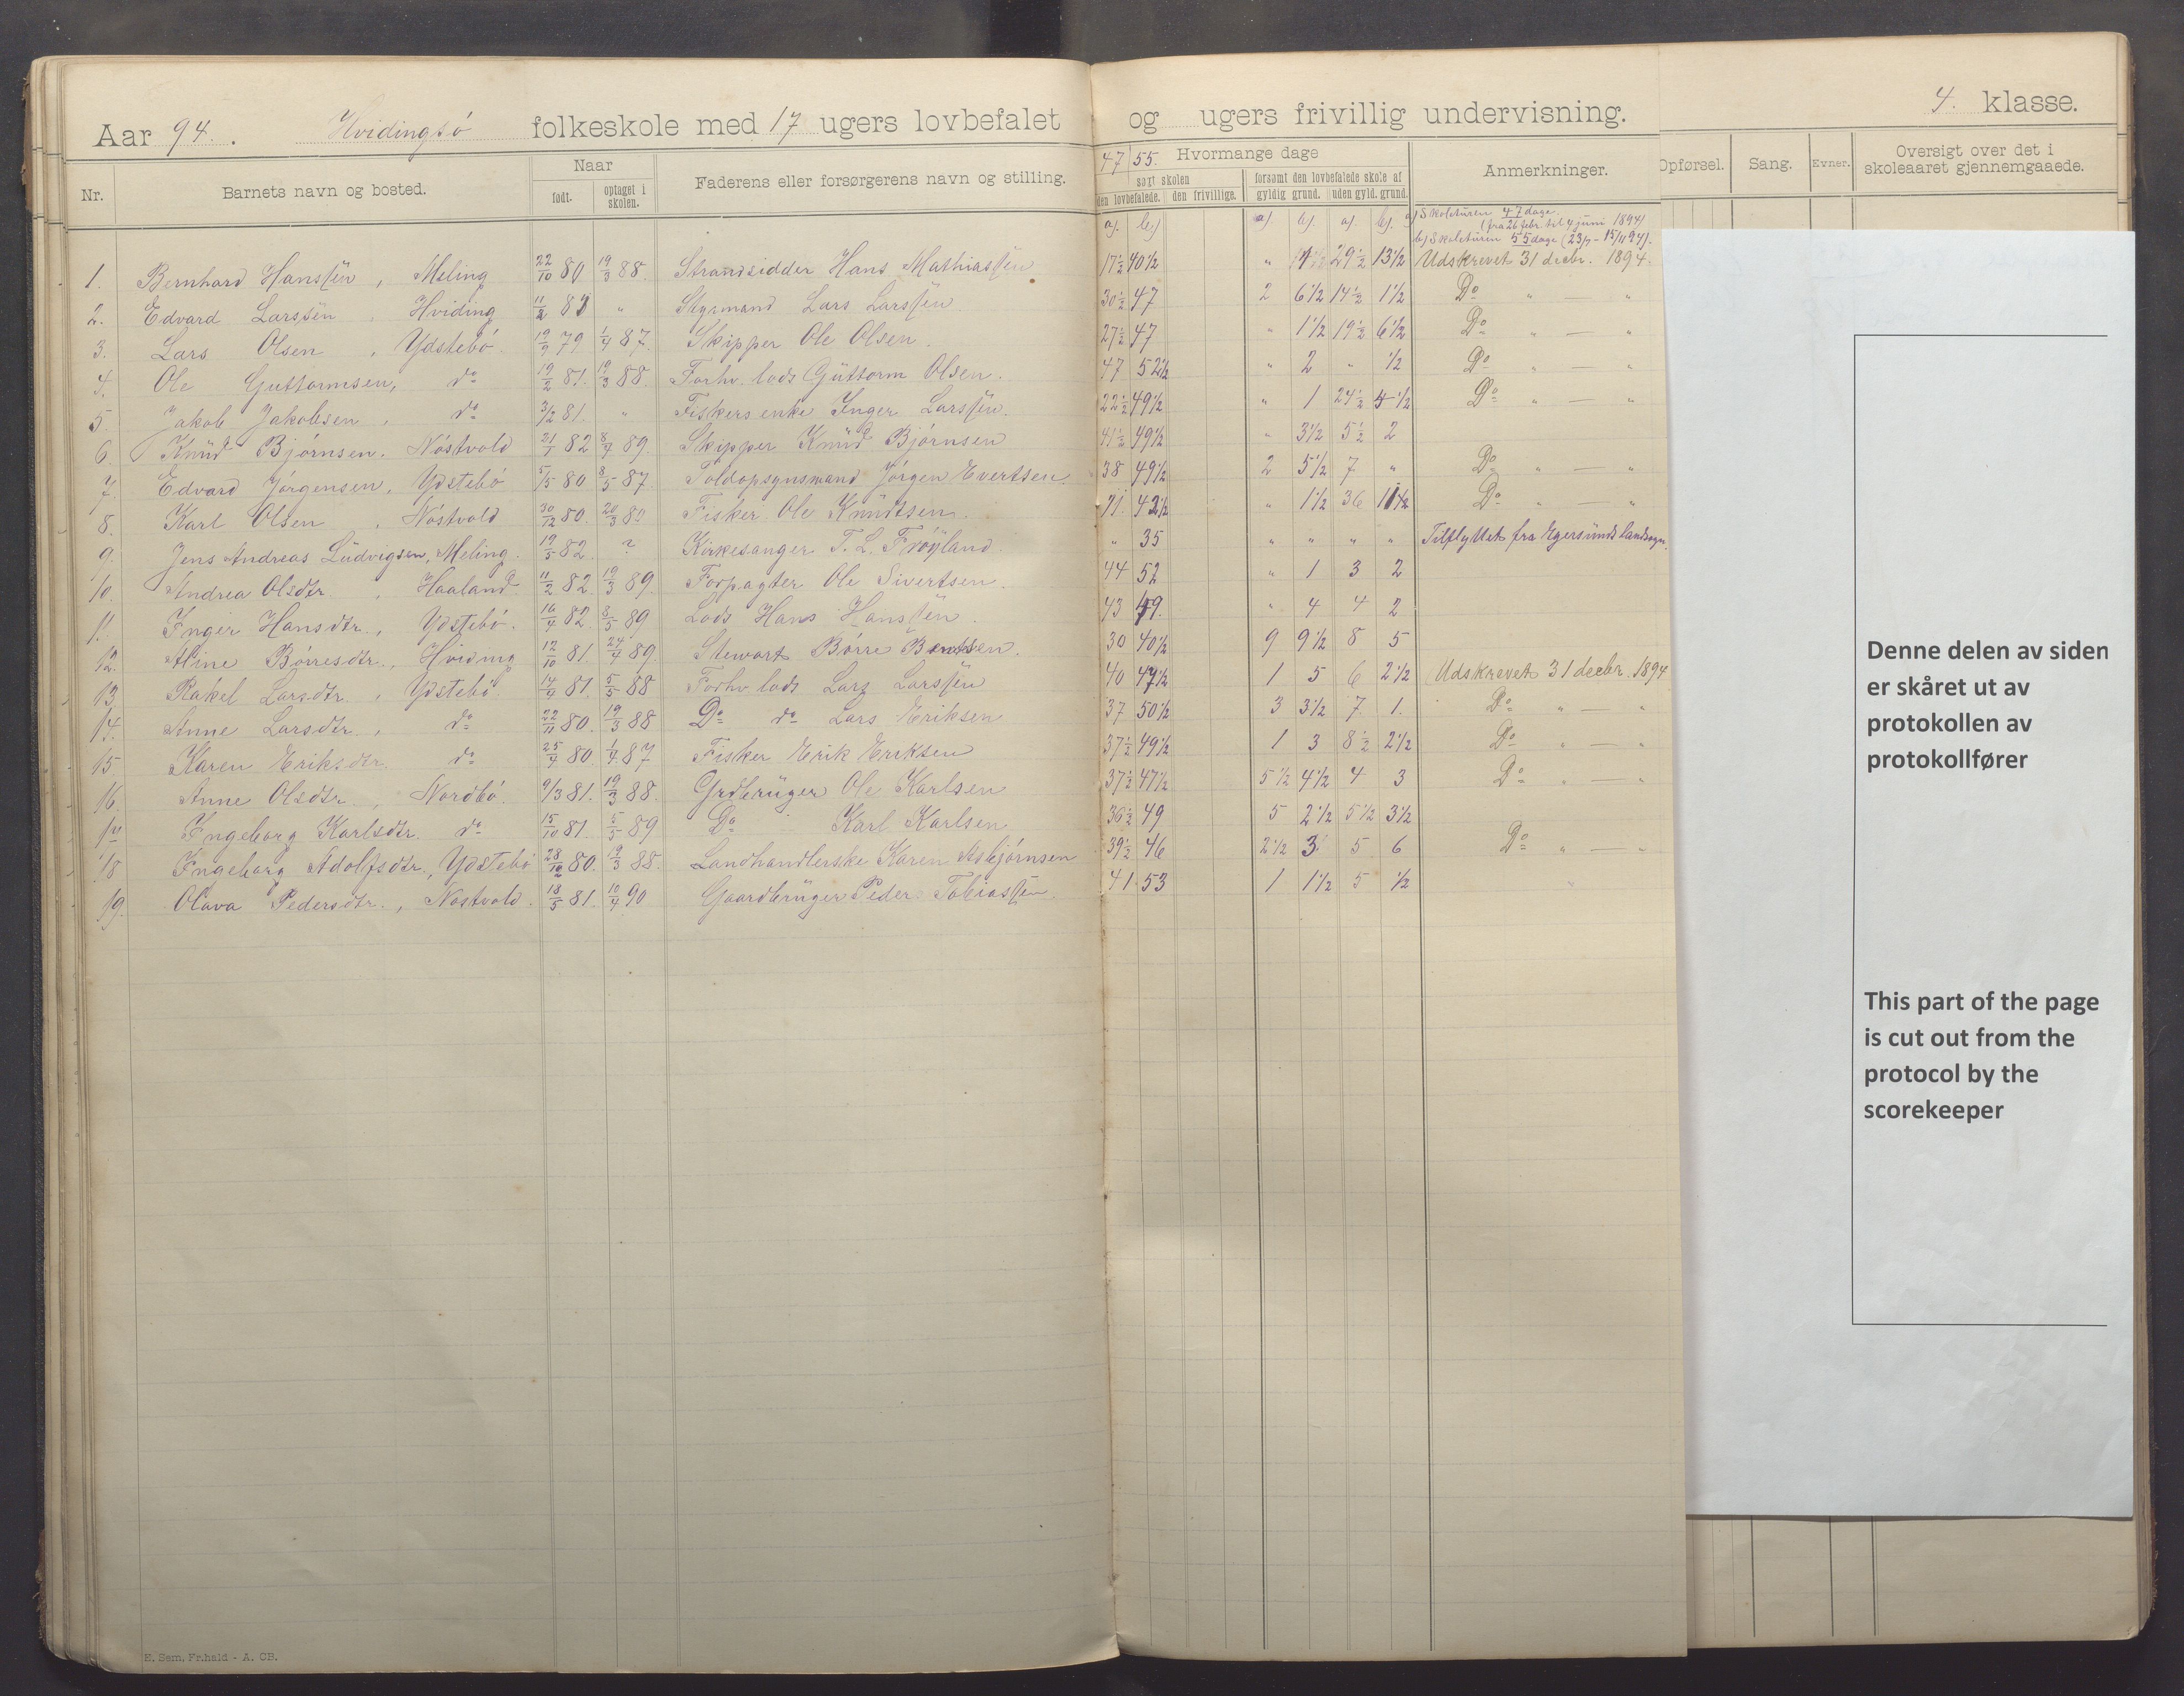 Aar 94. Hvidingsö folkeskole med 17 ugers lovbefalet og ugers frivillig undervisning. 4. klasse.
Nr. Barnets navn og bosted. Naar født. optaget i skolen. Faderens eller forsørgerens navn og stilling. 47 55. Hvormange dage søgt skolen den lovbefalede. den frivillige. forsømt den lovbefalede skole af gyldig grund. uden gyld. grund. Anmerkninger. Opførsel. Sang. Evner. Oversigt over det i skoleaaret gjennemgaaede.
a). b) a) b). a). b).
a) Skoleturen 47 dage.
(fra 26 febr. til 4 juni 1894)
b) Skoleturen 55 dage (23/7 - 15/11 94).
1. Bernhard Hanssen, Meling 22/10 80 19/3 88. Strandsidder Hans Mathiassen 17½ 40½ " 29½ 13½ Udskrevet 31 decbr. 1894.
2. Edvard Larssen, Hviding " Styrmand Lars Larssen 30½ 47 2 6½ 14½ 1½ Do " "
3. Lars Olsen, Ydstebö. 19/9 79 1/4 87. Skipper Ole Olsen. 27½ 47 " 1½ 19½ 6½ Do " — "
4. Ole Guttormsen, do 19/2 81. 19/3 88. Forhv. lods Guttorm Olsen. 47 52½ " 2 " ½ Do " — "
5. Jakob Jakobsen, do 3/2 81. " Fiskers enke Inger Larssen. 22½ 49½ " 1 24½ 4½ Do " — "
6. Knud Björnsen, Nöstvold 21/1 82 8/4 89. Skipper Knud Björnsen 41½ 49½ " 3½ 5½ 2
7. Edvard Jörgensen, Ydstebö 5/5 80 8/5 87. Toldopsynsmand Jörgen Evertsen. 38 49½ 2 5½ 7 " Do " — "
8. Karl Olsen, Nöstvold 30/12 80. Fisker Ole Knudtsen. 11. 42½ " 1½ 36 11½ Do " "
9. Jens Andreas Ludvigsen, Meling. 19/5 82. ? Kirkesanger T. L. Fröyland. " 35 " " " " Tilflyttet fra Egersunds landsogn.
10. Andrea Olsdtr., Haaland 11/2 82. 19/3 89. Forpagter Ole Sivertsen. 44 52 " 1 3 2
11. Inger Hansdtr., Ydstebö. 16/4 82. 8/5 89 Lods Hans Hanssen. 43 49. " 4 4 2
12. Aline Börresdtr., Hviding 12/10 81. 24/4 89. Stewart Börre Bentsen. 30 40½ 9 9½ 8 5
13. Rakel Larsdtr., Ydstebö 14/9 81. 5/5 88 Forhv. lods Lars Larssen 40 47½ 1 5 6 2½ Udskrevet 31 decbr. 1894
14. Anne Larsdtr., do 22/11 80. 19/3 88 Do do Lars Eriksen 37 50½ 3 3½ 7. 1. Do " — "
15. Karen Eriksdtr. do 25/4 80. 1/4 87 Fisker Erik Eriksen 37½ 49½ 1 3 8½ 2½ Do " — "
16. Anne Olsdtr., Nordbö. 9/3 81. 19/3 88. Grdbruger Ole Karlsen 37½ 47½ 5½ 4½ 4 3 Do " — "
17 Ingeborg Karlsdtr. do 15/10 81. 5/5 89 Do Karl Karlsen 36½ 49 5 2½ 5½ 3½
18 Ingeborg Adolfsdtr., Ydstebö 28/12 80. 19/3 88. Landhandlerske Karen Asbjörnsen 39½ 46 2½ 3 5 6 Do " — "
19. Olava Pedersdtr., Nöstvold. 18/5 81. 10/4 90 Gaardbruger Peder Tobiassen. 41 53 1 1½ 5 ½
Denne delen av siden
er skåret ut av
protokollen av
protokollfører
This part of the page
is cut out from the
protocol by the
scorekeeper
E. Sem, Fr.hald - A. CB.